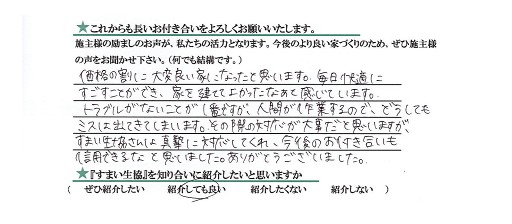 ★これからも長いお付き合いをよろしくお願いいたします。
施主様の励ましのお声が、私たちの活力となります。今後のより良い家づくりのため、ぜひ施主様
の声をお聞かせ下さい。(何でも結構です。)
価格の割に大変良い家になったと思います。毎日快適に
すごすことができ、家を建ててよかったなあと感じています。
トラブルがないことが1番ですが、人間が作業するので、どうしても
ミスは出てきてしまいます。その際の対応が大事だと思いますが、
すまい生協さんは真摯に対応してくれ、今後のお付き合いも
信用できるなと思いました。ありがとうございました。
★『すまい生協』を知り合いに紹介したいと思いますか
( ぜひ紹介したい 紹介しても良い 紹介したくない 紹介しない )